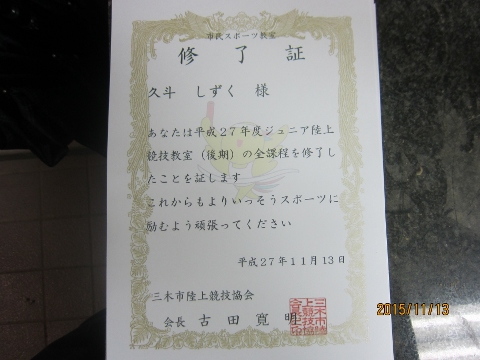 市民スポーツ教室
修了証
久斗 しずく 様
あなたは平成27年度ジュニア陸上
競技教室（後期）の全課程を修了し
たことを証します
これからもよりいっそうスポーツに
励むよう頑張ってください
平成27年11月13日
三木市陸上競技協会
会長 古田 寛明
2015/11/13